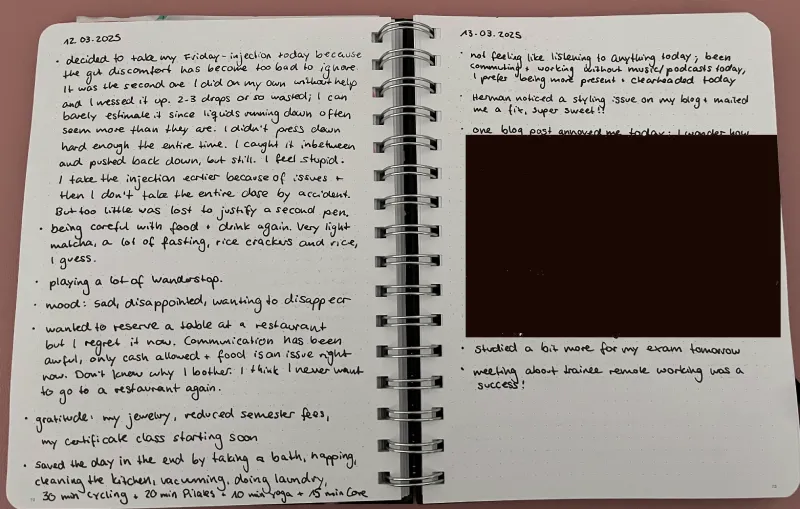 12.03.2025
• decided to take my Friday-injection today because
the gut discomfort has become too bad to ignore.
It was the second one I did on my own without help
and I messed it up. 2-3 drops or so wasted; I can
barely estimate it since liquids running down often
seem more than they are. I didn't press down
hard enough the entire time. I caught it inbetween
and pushed back down, but still. I feel stupid.
I take the injection earlier because of issues +
then I don't take the entire dose by accident.
But too little was lost to justify a second pen.
• being careful with food + drink again. Very light
matcha, a lot of fasting, rice crackers and rice,
I guess.
• playing a lot of Wanderstop.
• mood: sad, disappointed, wanting to disappear
• wanted to reserve a table at a restaurant
but I regret it now. Communication has been
awful, only cash allowed + food is an issue right
now. Don't know why I bother. I think I never want
to go to a restaurant again.
• gratitude: my jewelry, reduced semester fees,
my certificate class starting soon
• saved the day in the end by taking a bath, napping,
cleaning the kitchen, vacuuming, doing laundry,
30 min cycling + 20 min Pilates + 10 min yoga + 15 min Core
13.03.2025
• not feeling like listening to anything today; been
commuting + working without music/podcasts today,
I prefer being more present + clearheaded today
• Herman noticed a styling issue on my blog + mailed
me a fix, super sweet!!
• one blog post annoyed me today: I wonder how
• studied a bit more for my exam tomorrow
• meeting about trainee remote working was a
success!